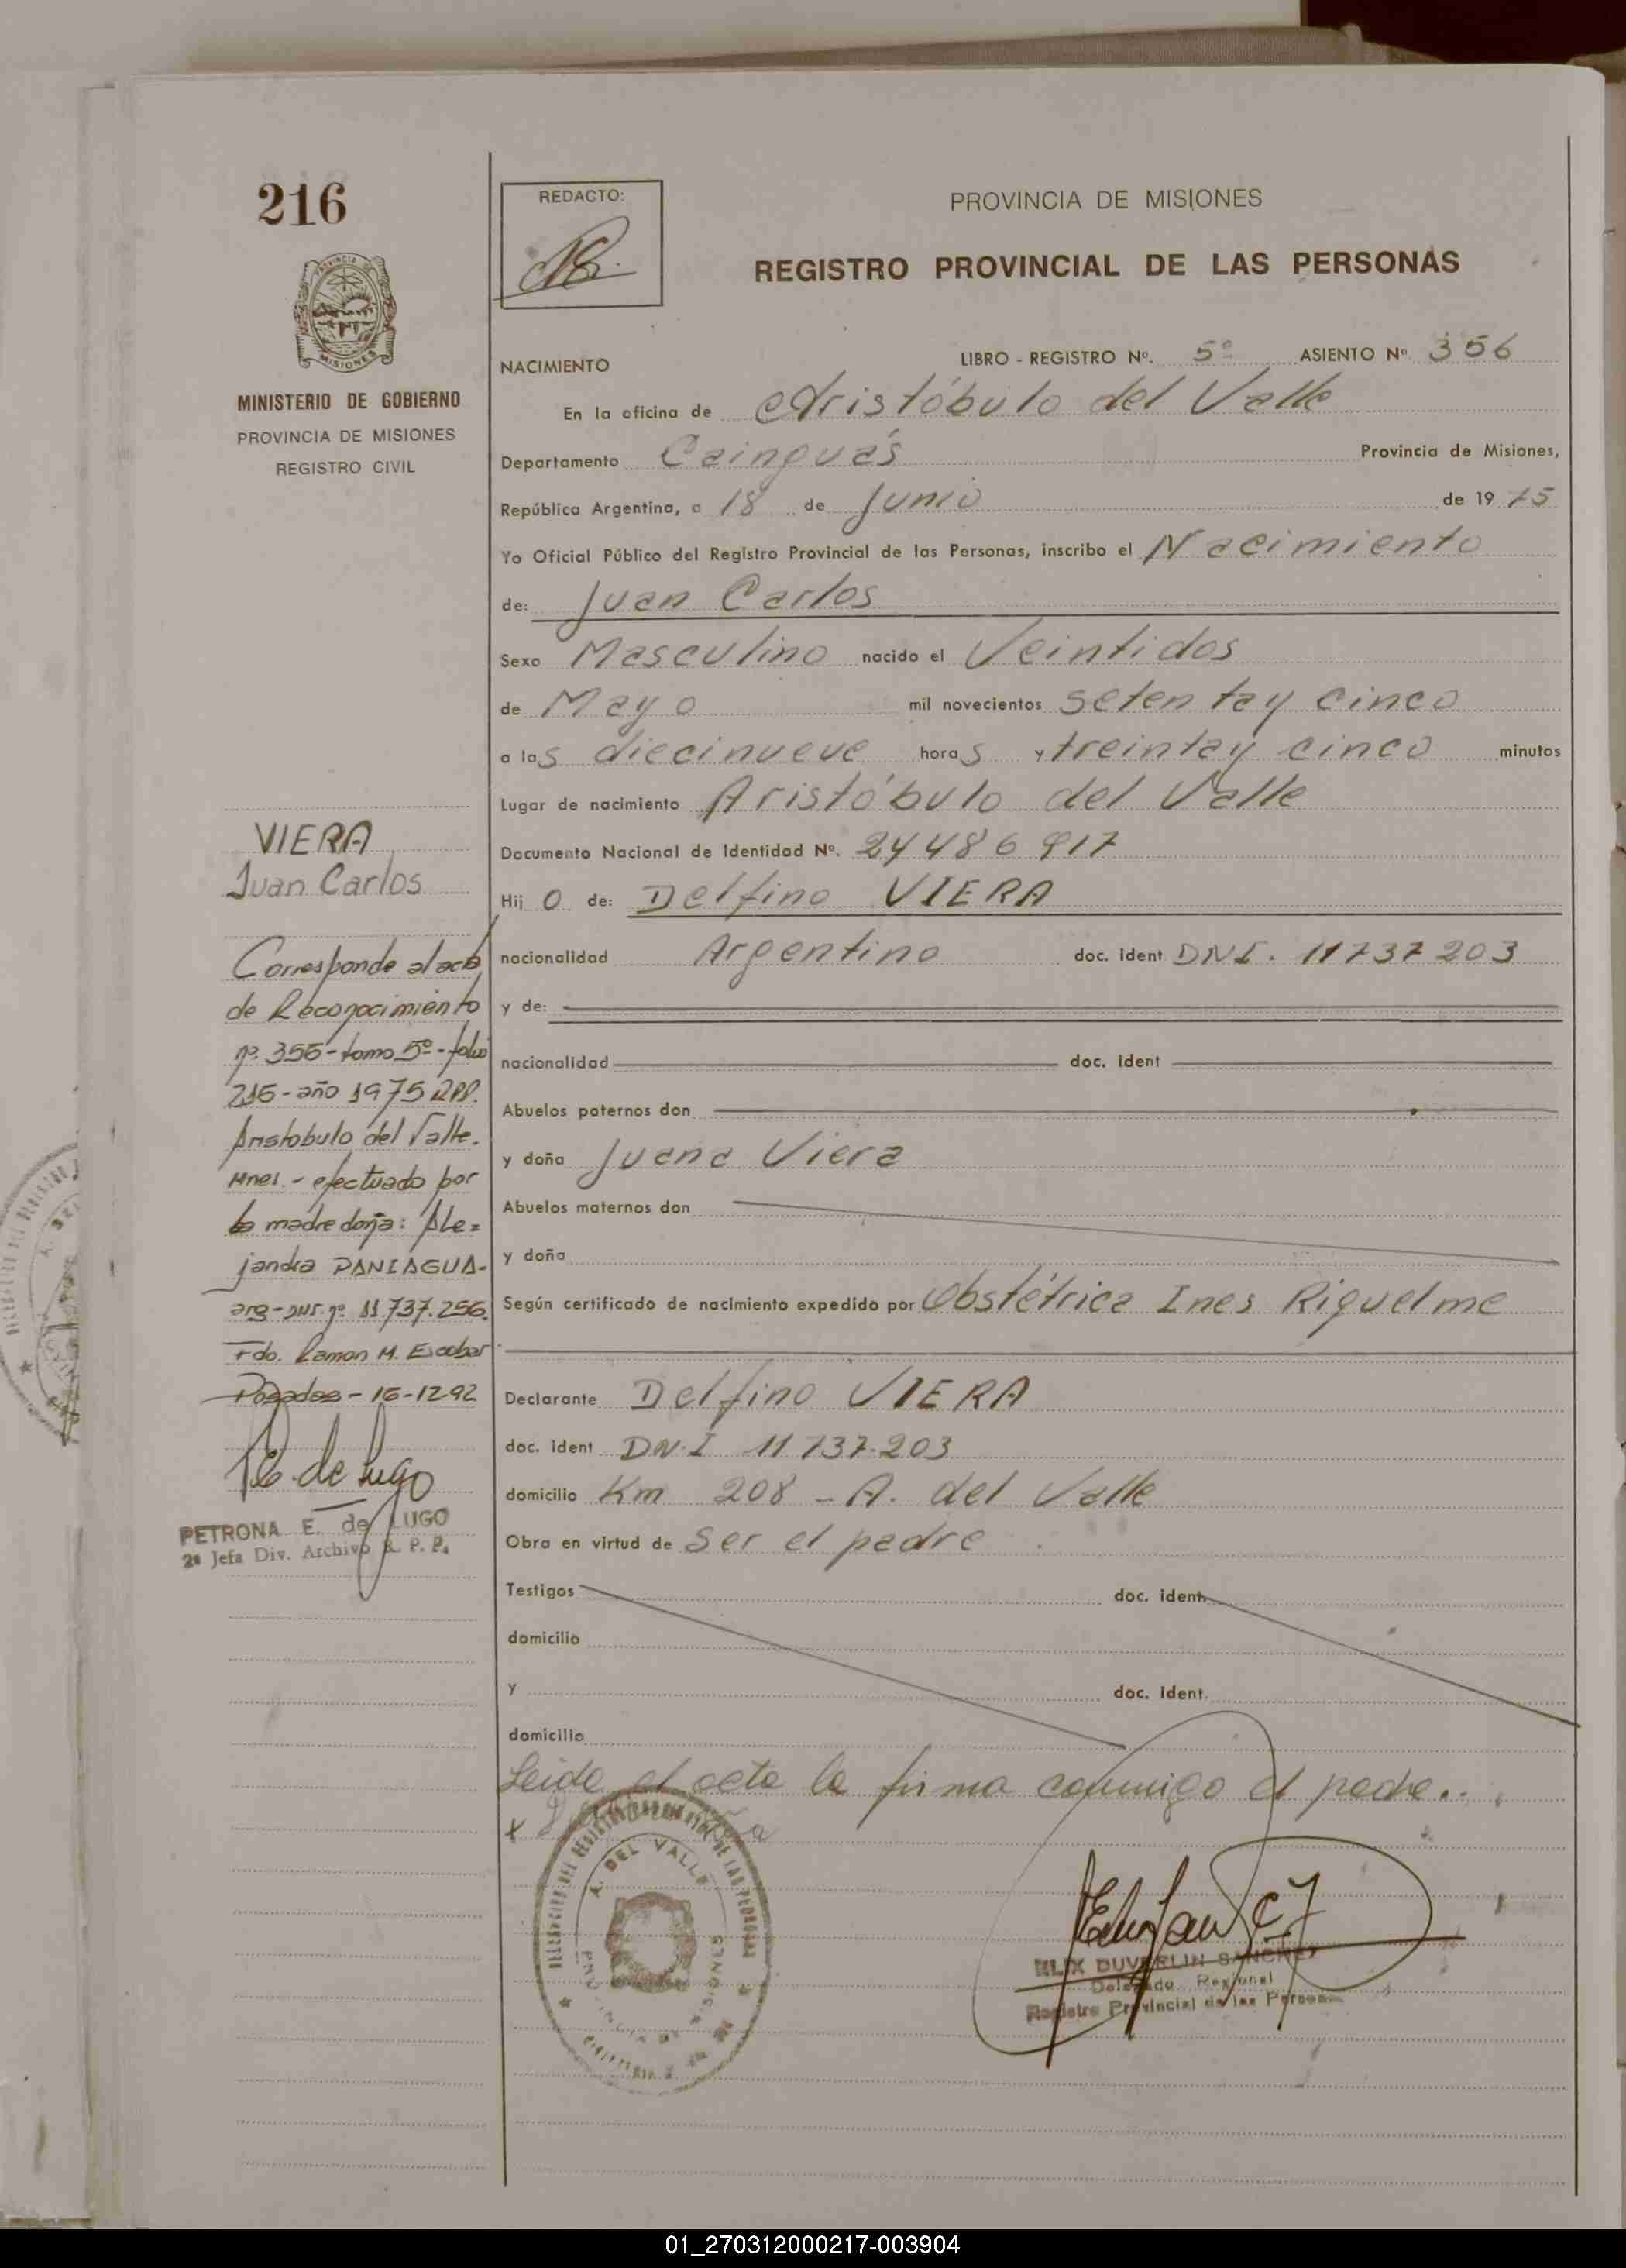 216
PROVINCIA DE
MISIONES
MINISTERIO DE GOBIERNO
PROVINCIA DE MISIONES
REGISTRO CIVIL
VIERA
Juan Carlos
Corresponde al acta
de Reconocimiento
nº 356 - tomo 5º - folio
216 - año 1975 RPP.
Aristobulo del Valle.
Mnes. - efectuado por
la madre doña: Ale=
jandra PANIAGUA-
arg - DNI. nº 11.737.256.
Fdo. Ramon M. Escobar
Posadas - 16-12-92
E. de Lugo
PETRONA E. de LUGO
2ª Jefa Div. Archivo R. P. P.
REDACTO:
PROVINCIA DE MISIONES
REGISTRO PROVINCIAL DE LAS PERSONAS
NACIMIENTO LIBRO - REGISTRO Nº. 5º ASIENTO Nº 356
En la oficina de Aristóbulo del Valle
Departamento Cainguás Provincia de Misiones,
República Argentina, a 18 de Junio de 19 75
Yo Oficial Público del Registro Provincial de las Personas, inscribo el Nacimiento
de: Juan Carlos
Sexo Masculino nacido el Veintidos
de Mayo mil novecientos setenta y cinco
a las diecinueve horas y treinta y cinco minutos
Lugar de nacimiento Aristóbulo del Valle
Documento Nacional de Identidad Nº. 24486917
Hij o de: Delfino VIERA
nacionalidad Argentino doc. ident DNI. 11737203
y de:
nacionalidad doc. ident
Abuelos paternos don
y doña Juana Viera
Abuelos maternos don
y doña
Según certificado de nacimiento expedido por Obstétrica Ines Riquelme
Declarante Delfino VIERA
doc. ident DN.I 11737.203
domicilio Km 208 - A. del Valle
Obra en virtud de ser el padre
Testigos doc. ident.
domicilio
y doc. ident.
domicilio
Leida el acta la firma conmigo el padre..
x
A. DEL VALLE
PROVINCIA DE MISIONES
DUVERLIN SANCHEZ
Delegado Regional
Registro Provincial de las Personas
01_270312000217-003904